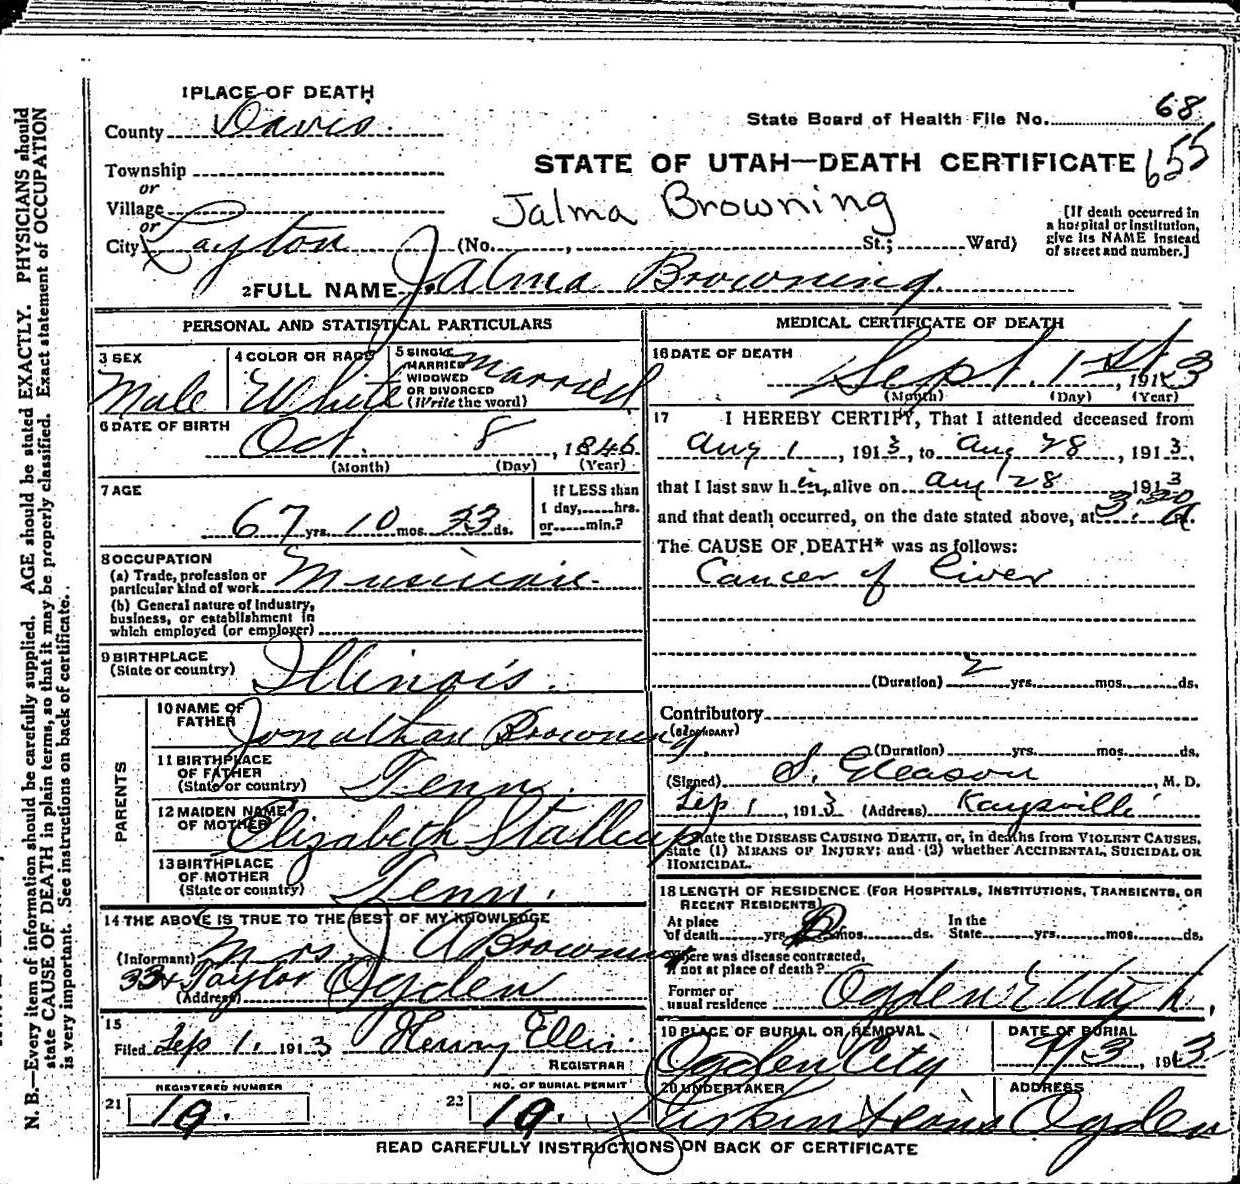 N. B.—Every item of information should be carefully supplied. AGE should be stated EXACTLY. PHYSICIANS should
state CAUSE OF DEATH in plain terms, so that it may be properly classified. Exact statement of OCCUPATION
is very important. See instructions on back of certificate.
1 PLACE OF DEATH
County Davis
Township
or
Village
or
City Layton (No. , St.; Ward)
State Board of Health File No. 68
655
STATE OF UTAH—DEATH CERTIFICATE
Jalma Browning
[If death occurred in
a hospital or institution,
give its NAME instead
of street and number.]
2 FULL NAME J. Alma Browning.
PERSONAL AND STATISTICAL PARTICULARS
3 SEX
Male
4 COLOR OR RACE
White
5 SINGLE
MARRIED
WIDOWED
OR DIVORCED
(Write the word)
Married
6 DATE OF BIRTH
Oct. 8, 1846
(Month) (Day) (Year)
7 AGE
67 yrs. 10 mos. 23 ds.
If LESS than
1 day,.....hrs.
or.....min.?
8 OCCUPATION
(a) Trade, profession or
particular kind of work Musician.
(b) General nature of industry,
business, or establishment in
which employed (or employer)
9 BIRTHPLACE
(State or country) Illinois.
PARENTS
10 NAME OF
FATHER Jonathan Browning.
11 BIRTHPLACE
OF FATHER
(State or country) Tenn.
12 MAIDEN NAME
OF MOTHER Elizabeth Stallcup
13 BIRTHPLACE
OF MOTHER
(State or country) Tenn.
14 THE ABOVE IS TRUE TO THE BEST OF MY KNOWLEDGE
(Informant) Mrs. J A Browning
Taylor Ogden
(Address)
15
Filed Sep 1. 1913 Henry Ellis.
REGISTRAR
REGISTERED NUMBER
21 19.
NO. OF BURIAL PERMIT
22 19.
MEDICAL CERTIFICATE OF DEATH
16 DATE OF DEATH
Sept. 1st, 1913
(Month) (Day) (Year)
17 I HEREBY CERTIFY, That I attended deceased from
Aug 1, 1913, to Aug 28, 1913,
that I last saw him alive on Aug 28 1913
and that death occurred, on the date stated above, at 3.30 A.
The CAUSE OF DEATH* was as follows:
Cancer of Liver
(Duration) 2 yrs. mos. ds.
Contributory
(SECONDARY)
(Duration) yrs. mos. ds.
(Signed) S. Gleason, M. D.
Sep 1, 1913 (Address) Kaysville
State the DISEASE CAUSING DEATH, or, in deaths from VIOLENT CAUSES,
state (1) MEANS OF INJURY; and (2) whether ACCIDENTAL, SUICIDAL OR
HOMICIDAL.
18 LENGTH OF RESIDENCE (FOR HOSPITALS, INSTITUTIONS, TRANSIENTS, OR
RECENT RESIDENTS)
At place In the
of death yrs. mos. ds. State yrs. mos. ds.
Where was disease contracted,
if not at place of death?
Former or
usual residence Ogden Utah.
19 PLACE OF BURIAL OR REMOVAL
Ogden City
DATE OF BURIAL
9/3 1913
20 UNDERTAKER
ADDRESS
Ogden
READ CAREFULLY INSTRUCTIONS ON BACK OF CERTIFICATE